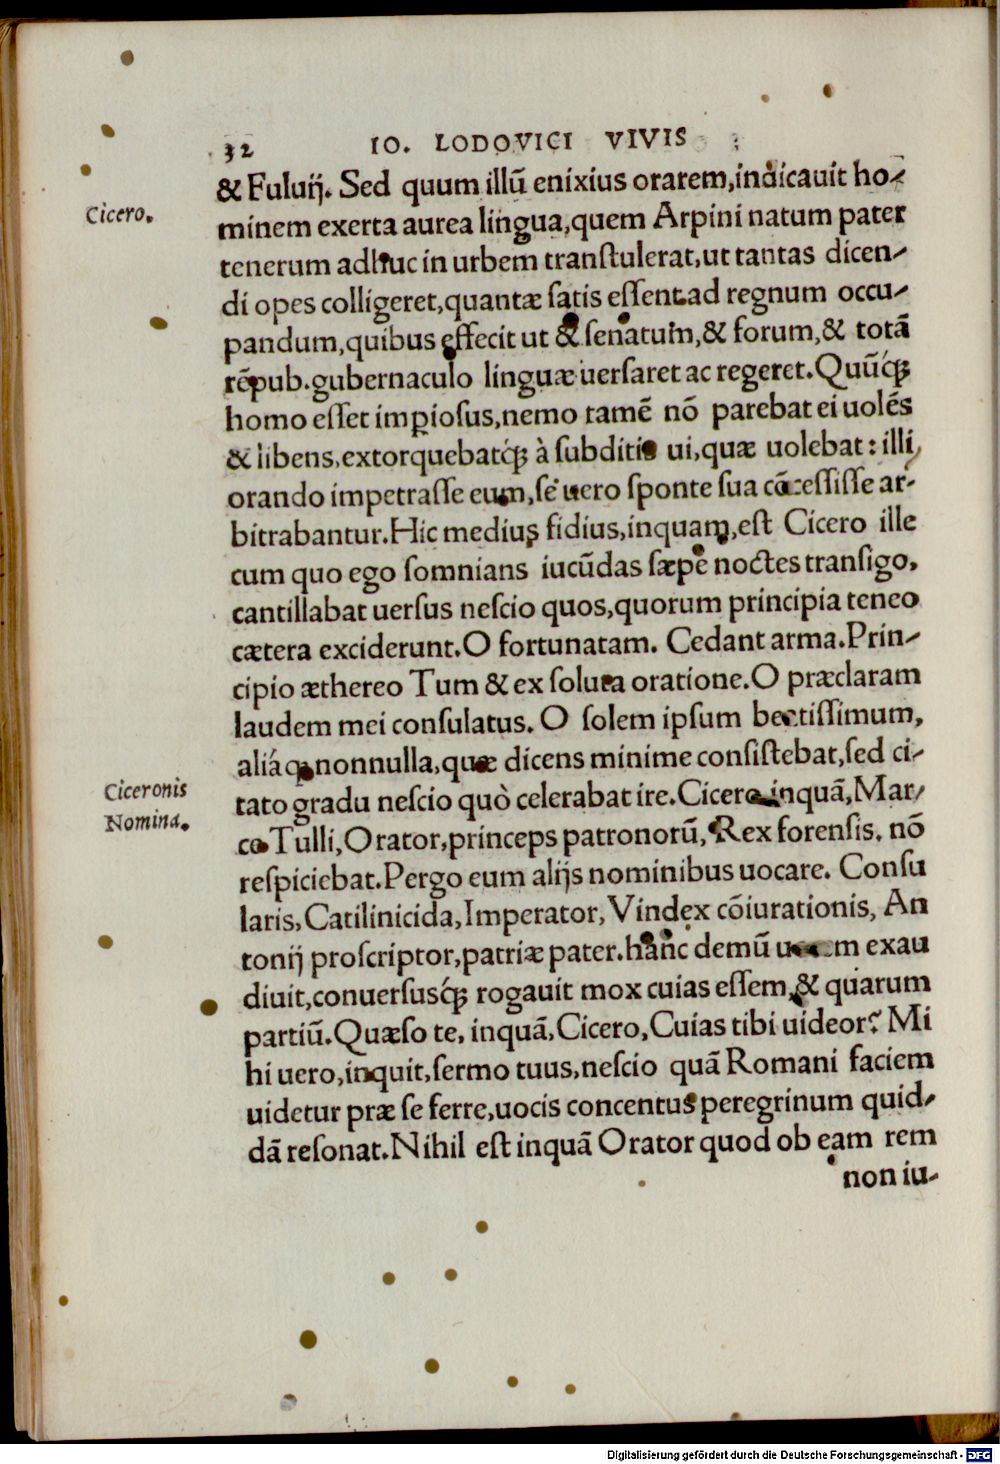 32 IO. LODOVICI VIVIS
& Fuluij. Sed quum illũ enixius orarem,indicauit ho-
Cicero.
minem exerta aurea lingua,quem Arpini natum pater
tenerum adhuc in urbem transtulerat,ut tantas dicen-
di opes colligeret,quantæ satis essent ad regnum occu-
pandum,quibus effecit ut & senatum,& forum,& totã
rẽpub.gubernaculo linguæ uersaret ac regeret.Quũq́;
homo esset impiosus,nemo tamẽ nõ parebat ei uolẽs
& libens,extorquebatq́; à subditis ui,quæ uolebat: illi
orando impetrasse eum,se uero sponte sua cõcessisse ar-
bitrabantur.Hic medius fidius,inquam,est Cicero ille
cum quo ego somnians iucũdas sæpe noctes transigo,
cantillabat uersus nescio quos,quorum principia teneo
cætera exciderunt.O fortunatam. Cedant arma.Prin-
cipio æthereo Tum & ex soluta oratione.O præclaram
laudem mei consulatus. O solem ipsum beatissimum,
aliáq; nonnulla,quæ dicens minime consistebat,sed ci-
Ciceronis
Nomina.
tato gradu nescio quò celerabat ire.Cicero inquã,Mar-
co Tulli,Orator,princeps patronorũ, Rex forensis. nõ
respiciebat.Pergo eum alijs nominibus uocare. Consu
laris,Catilinicida,Imperator,Vindex cõiurationis, An
tonij proscriptor,patriæ pater.hanc demũ uocem exau
diuit,conuersusq́; rogauit mox cuias essem,& quarum
partiũ.Quæso te, inquã,Cicero,Cuias tibi uideor? Mi
hi uero,inquit,sermo tuus,nescio quã Romani faciem
uidetur præ se ferre,uocis concentus peregrinum quid-
dã resonat.Nihil est inquã Orator quod ob eam rem
non iu-
Digitalisierung gefördert durch die Deutsche Forschungsgemeinschaft - DFG